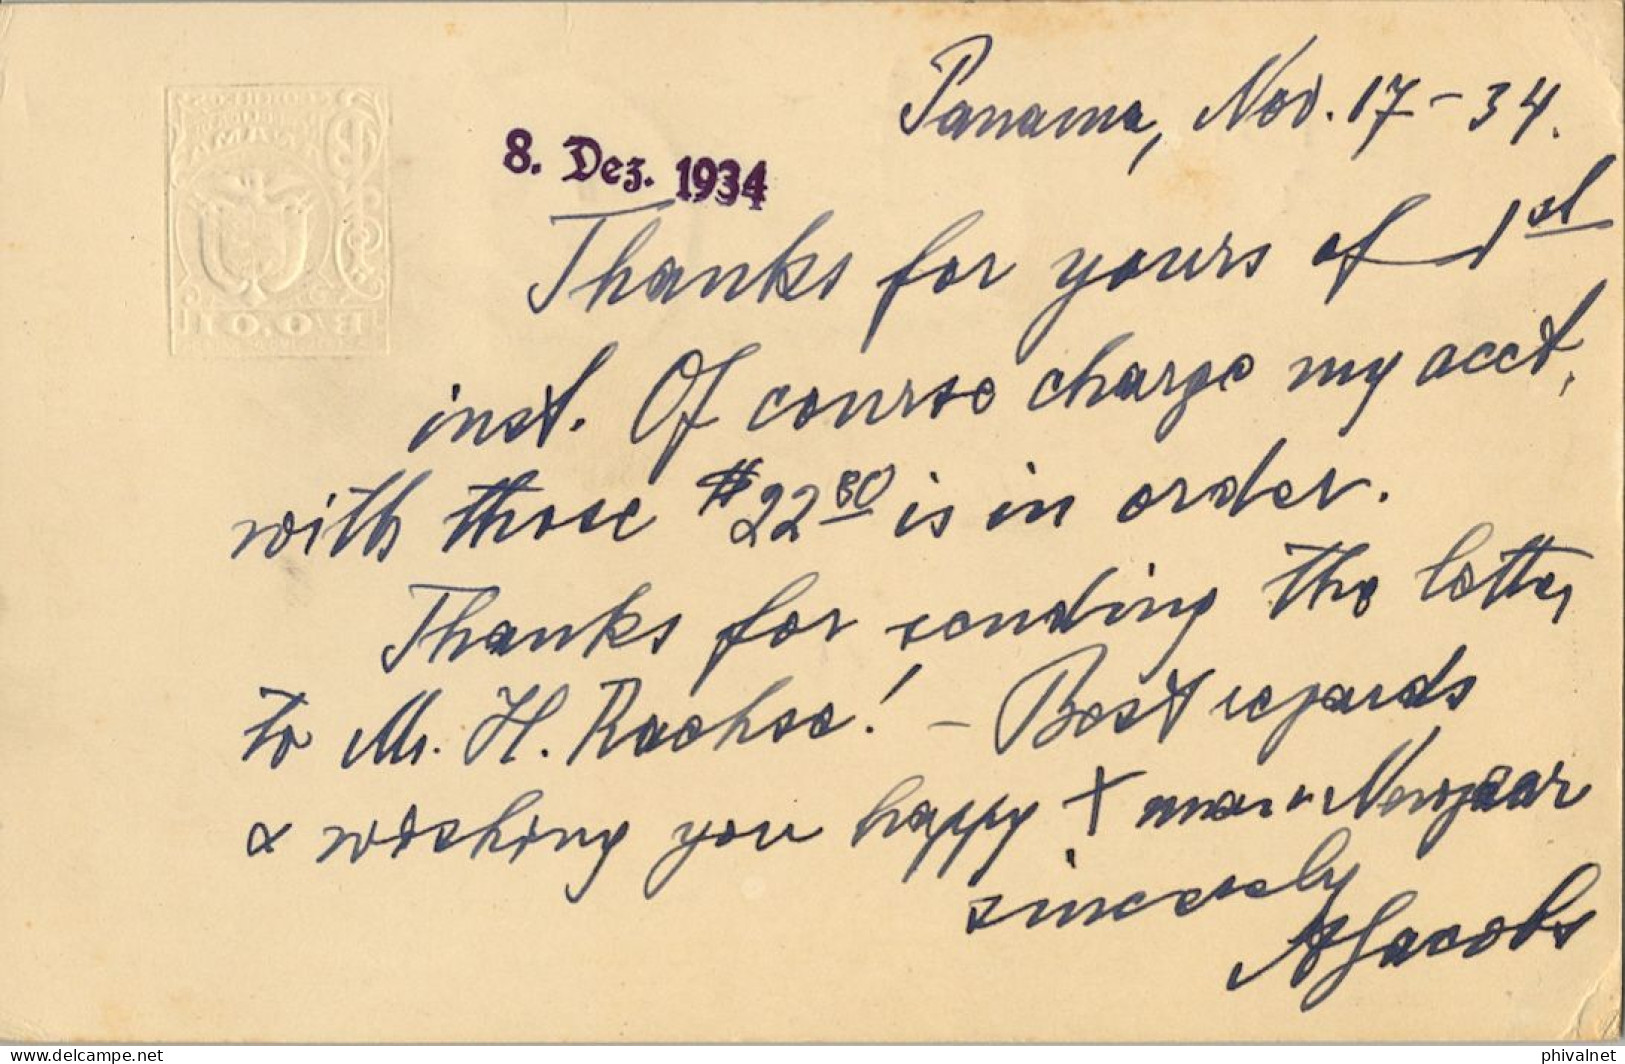 Panama, Nov. 17 - 34.
8. Dez. 1934
Thanks for yours of 1st
inst. Of course charge my acct,
with those $22 80 is in order.
Thanks for sending the letter
to Mr. H. Rackse! - Best regards
& wishing you happy X mas u. Newyear
sincerely
AJacobs
B/0.01
www.delcampe.net
phivalnet